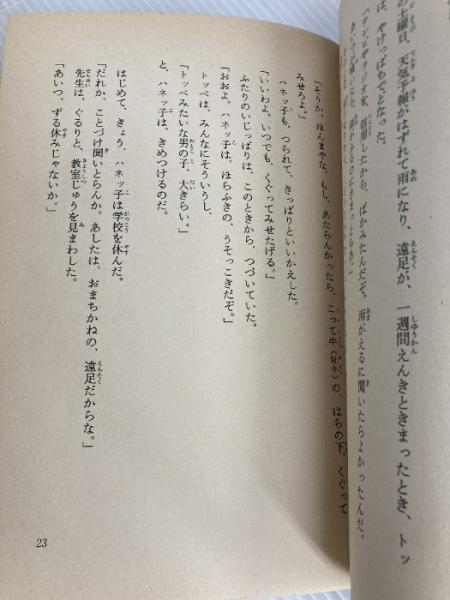 の土曜日、天気予報がはずれて雨になり、遠足が、一週間えんきときまったとき、トッ
は、やけっぱちでとなった。
信用したから、ばかみたんだぞ。雨がえるに聞いたらよかったんだ。
「そりゃ、ほんまやな。もし、あたらんかったら、こって牛（牡牛）の、はらの下、くぐって
みせろよ。」
ハネッ子も、つられて、きっぱりといいかえした。
「いいわよ。いつでも、くぐってみせたげる。」
ふたりのいじっぱりは、このときから、つづいていた。
「おおよ。ハネッ子は、ほらふきの、うそっこきだぞ。」
トッペは、みんなにそういうし、
「トッペみたいな男の子、大きらい。」
と、ハネッ子は、きめつけるのだ。
はじめて、きょう、ハネッ子は学校を休んだ。
「だれか、ことづけ聞いとらんか。あしたは、おまちかねの、遠足だからな。」
先生は、ぐるりと、教室じゅうを見まわした。
「あいつ、ずる休みじゃないか。」
23